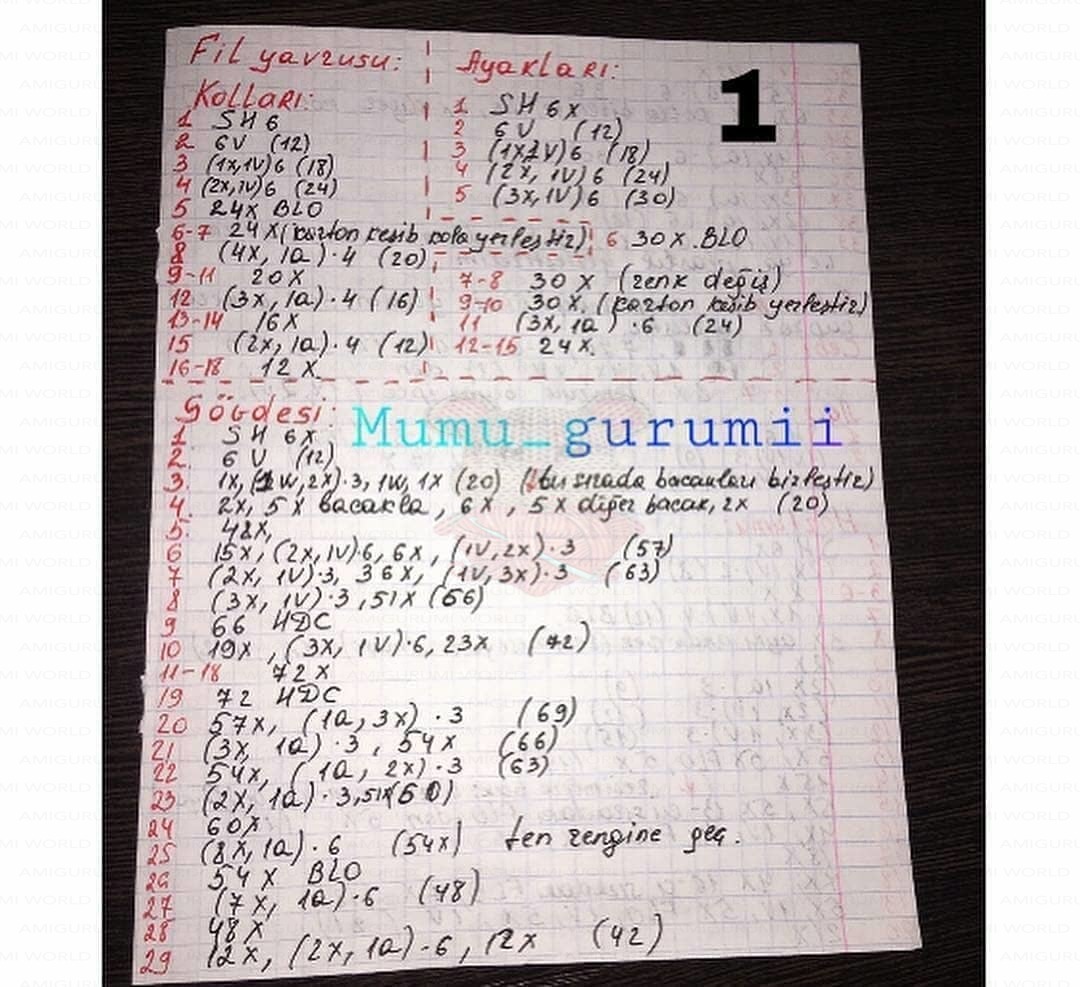 1
Fil yavrusu:
Kolları:
1 SH 6
2 6V (12)
3 (1x,1v)6 (18)
4 (2x,1v)6 (24)
5 24x BLO
6-7 24x (karton kesib kola yerleştir)
8 (4x, 1a)·4 (20)
9-11 20x
12 (3x, 1a)·4 (16)
13-14 16x
15 (2x, 1a)·4 (12)
16-18 12x
Ayakları:
1 SH 6x
2 6V (12)
3 (1x1v)6 (18)
4 (2x, 1v)6 (24)
5 (3x, 1v)6 (30)
6 30x BLO
7-8 30x (renk değiş)
9-10 30x (karton kesib yerleştir)
11 (3x, 1a)·6 (24)
12-15 24x
Gövdesi:
Mumu_gurumii
1 SH 6x
2 6V (12)
3 1x, (1w, 2x)·3, 1w, 1x (20) (bu sırada bacakları birleştir)
4 2x, 5x bacakla, 6x, 5x diğer bacak, 2x (20)
5 48x,
6 15x, (2x, 1v)·6, 6x, (1v, 2x)·3 (57)
7 (2x, 1v)·3, 36x, (1v, 3x)·3 (63)
8 (3x, 1v)·3, 51x (66)
9 66 HDC
10 19x, (3x, 1v)·6, 23x (72)
11-18 72x
19 72 HDC
20 57x, (1a, 3x)·3 (69)
21 (3x, 1a)·3, 54x (66)
22 54x, (1a, 2x)·3 (63)
23 (2x, 1a)·3, 51x(60)
24 60x
25 (8x, 1a)·6 (54x) ten rengine geç.
26 54x BLO
27 (7x, 1a)·6 (48)
28 48x
29 12x, (2x, 1a)·6, 12x (42)